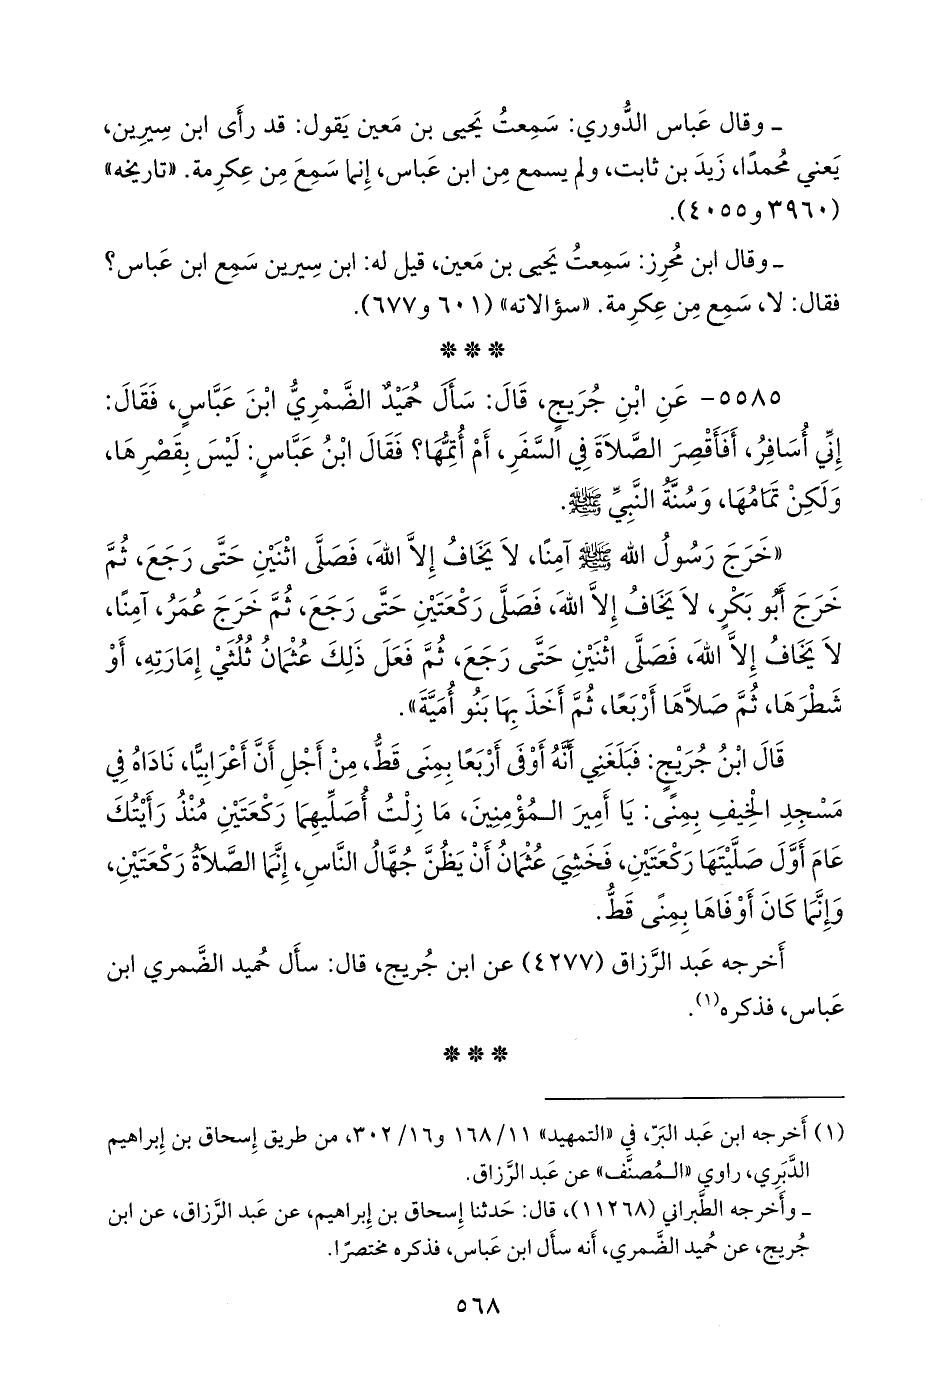 ـ وقال عَباس الدُّوري: سَمِعتُ يَحيى بن مَعين يَقول: قد رأَى ابن سِيرِين،
يَعني مُحمدًا، زَيدَ بن ثابت، ولم يسمع مِن ابن عَباس، إِنما سَمِعَ مِن عِكرِمة. «تاريخه»
(٣٩٦٠ و٤٠٥٥).
ـ وقال ابن مُحرِز: سَمِعتُ يَحيى بن مَعين، قيل له: ابن سِيرين سَمِع ابن عَباس؟
فقال: لا، سَمِع مِن عِكرِمة. «سؤالاته» (٦٠١ و٦٧٧).
* * *
٥٥٨٥- عَنِ ابْنِ جُرَيجٍ، قَالَ: سَأَلَ حُمَيْدٌ الضَّمْرِيُّ ابْنَ عَبَّاسٍ، فَقَالَ:
إِنِّي أُسَافِرُ، أَفَأَقْصِرَ الصَّلاَةَ فِي السَّفَرِ، أَمْ أُتِمُّهَا؟ فَقَالَ ابْنُ عَبَّاسٍ: لَيْسَ بِقَصْرِهَا،
وَلَكِنْ تَمَامُهَا، وَسُنَّةُ النَّبِيِّ ﷺ.
«خَرَجَ رَسُولُ الله ﷺ آمِنًا، لاَ يَخَافُ إِلاَّ اللهَ، فَصَلَّى اثْنَيْنِ حَتَّى رَجَعَ، ثُمَّ
خَرَجَ أَبُو بَكْرٍ، لاَ يَخَافُ إِلاَّ اللهَ، فَصَلَّى رَكْعَتَيْنِ حَتَّى رَجَعَ، ثُمَّ خَرَجَ عُمَرُ، آمِنًا،
لاَ يَخَافُ إِلاَّ اللهَ، فَصَلَّى اثْنَيْنِ حَتَّى رَجَعَ، ثُمَّ فَعَلَ ذَلِكَ عُثْمَانُ ثُلُثَيْ إِمَارَتِهِ، أَوْ
شَطْرَهَا، ثُمَّ صَلاَّهَا أَرْبَعًا، ثُمَّ أَخَذَ بِهَا بَنُو أُمَيَّةَ».
قَالَ ابْنُ جُرَيْجٍ: فَبَلَغَنِي أَنَّهُ أَوْفَى أَرْبَعًا بِمِنًى قَطُّ، مِنْ أَجْلِ أَنَّ أَعْرَابِيًّا، نَادَاهُ فِي
مَسْجِدِ الْخِيفِ بِمِنًى: يَا أَمِيرَ الْمُؤْمِنِينَ، مَا زِلْتُ أُصَلِّيهِمَا رَكْعَتَيْنِ مُنْذُ رَأَيْتُكَ
عَامَ أَوَّلَ صَلَّيْتَهَا رَكْعَتَيْنِ، فَخَشِيَ عُثْمَانُ أَنْ يَظُنَّ جُهَّالُ النَّاسِ، إِنَّمَا الصَّلاَةُ رَكْعَتَيْنِ،
وَإِنَّمَا كَانَ أَوْفَاهَا بِمِنًى قَطُّ.
أَخرجه عَبد الرَّزاق (٤٢٧٧) عن ابن جُريج، قال: سأَل حُميد الضَّمري ابن
عَباس، فذكره(١).
* * *
(١) أَخرجه ابن عَبد البَرّ، في «التمهيد» ١١/ ١٦٨ و١٦/ ٣٠٢، من طريق إِسحاق بن إِبراهيم
الدَّبَري، راوي «الـمُصنَّف» عن عَبد الرَّزاق.
ـ وأَخرجه الطَّبراني (١١٢٦٨)، قال: حَدثنا إِسحاق بن إِبراهيم، عن عَبد الرَّزاق، عن ابن
جُريج، عن حُميد الضَّمري، أَنه سأَل ابن عَباس، فذكره مختصرًا.
٥٦٨